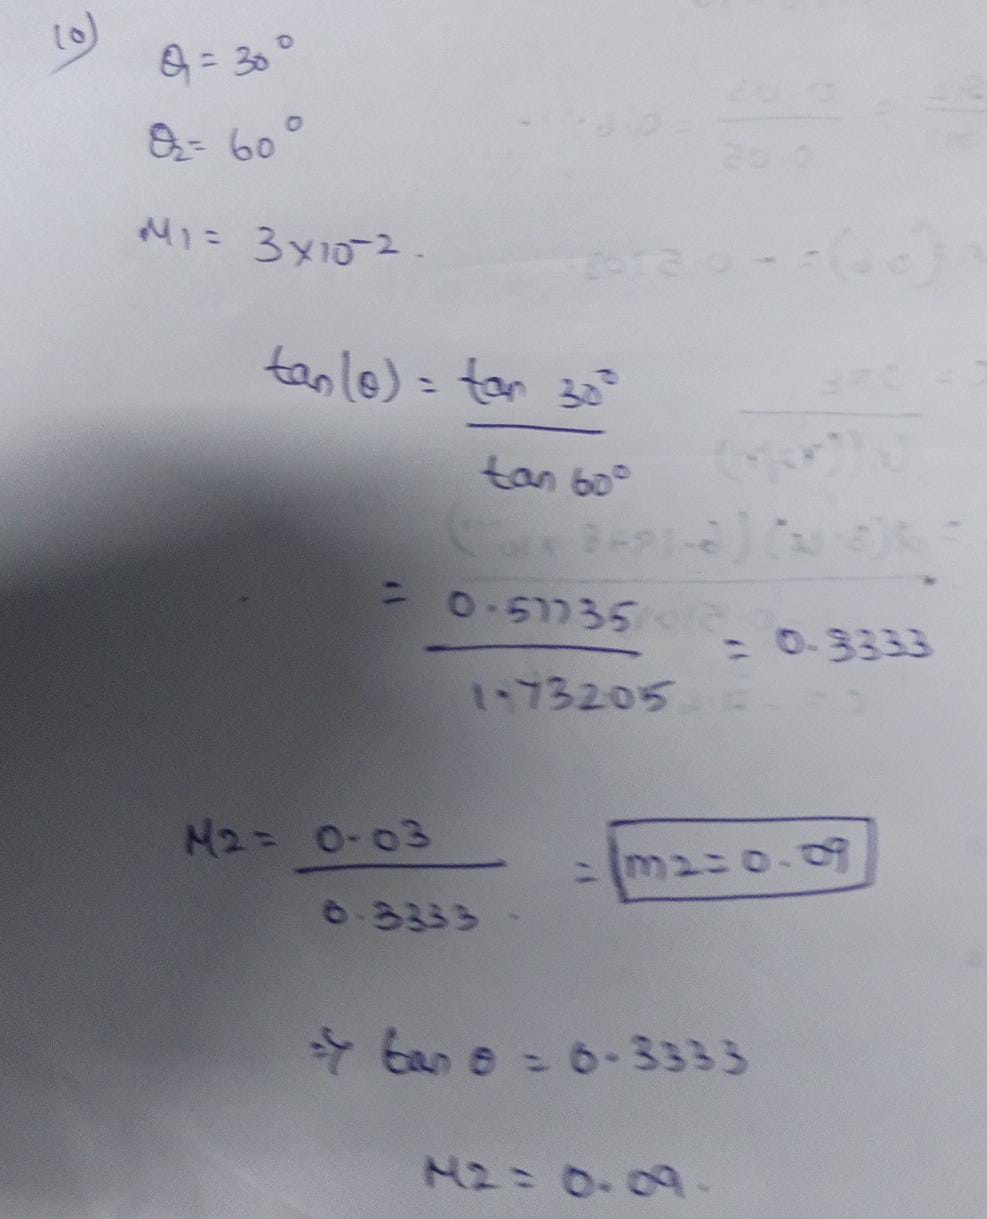 10)
θ1 = 30°
θ2 = 60°
M1 = 3×10-2.
tan(θ) = tan 30°
tan 60°
= 0.57735
1.73205
= 0.3333
M2 = 0.03
0.3333
= m2 = 0.09
⇒ tan θ = 0.3333
M2 = 0.09.